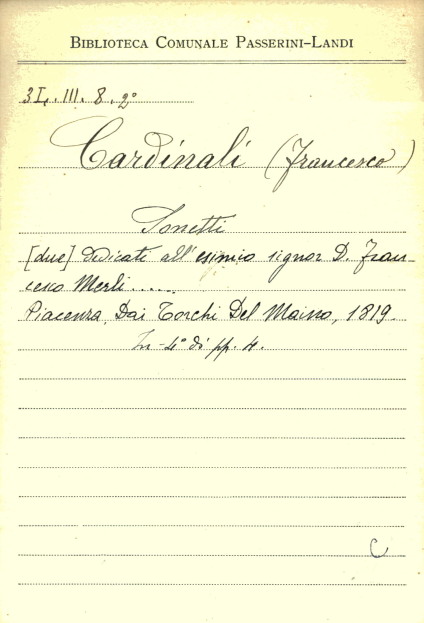 BIBLIOTECA COMUNALE PASSERINI-LANDI
3L. III. 8. 2°
Cardinali (Francesco)
Sonetti
[due] dedicati all'esimio signor D. Fran-
cesco Merli ......
Piacenza, Dai Torchi Del Maino, 1819.
In-4° di pp. 4.
C